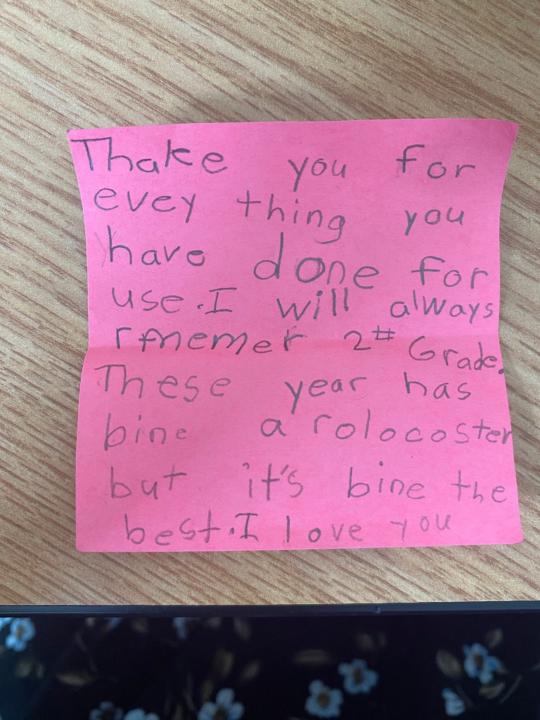 Thake you for
evey thing you
have done for
use. I will always
rmemer 2# Grade.
These year has
bine a rolocoster
but it's bine the
best. I love you